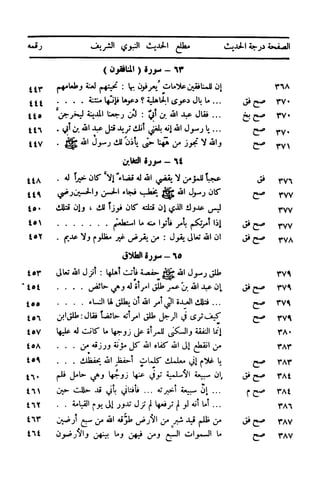 الصفحة درجة الحديث مطلع الحديث النبوي الشريف رقمه
٦٣ - سورة ( المنافقون )
٣٦٨ إن للمنافقين علامات يُعرفون بها : تحيتهم لعنة وطعامهم ٤٤٣
٣٧٠ صح فق ... ما بال دعوى الجاهلية ؟ دعوها فإنها منتنة . . . . ٤٤٤
٣٧٠ صح بخ ... فقال عبد الله بن أبيّ : لئن رجعنا المدينة ليخرجن ٤٤٥
٣٧٠ صح ... يا رسول الله إنه بلغني أنك تريد قتل عبد الله بن أبي . ٤٤٦
٣٧١ صح والله لا تجوز من ههنا حتى يأذن لك رسول الله ﷺ . ٤٤٧
٦٤ - سورة التغابن
٣٧٦ فق عجباً للمؤمن لا يقضي الله له قضاء إلا كان خيراً له . ٤٤٨
٣٧٧ صح كان رسول الله ﷺ يخطب فجاء الحسن والحسين رضي ٤٤٩
٣٧٧ ليس عدوك الذي إن قتلته كان فوزاً لك ، وإن قتلك ٤٥٠
٣٧٧ صح فق إذا أمرتكم بأمر فأتوا منه ما استطعتم . . . . . . . ٤٥١
٣٧٨ صح فق ان الله تعالى يقول : من يقرض غير مظلوم ولا عديم . ٤٥٢
٦٥ - سورة الطلاق
٣٧٩ طلق رسول الله ﷺ حفصة فأتت أهلها : أنزل الله تعالى ٤٥٣
٣٧٩ صح فق إن عبد الله بن عمر طلق امرأة له وهي حائض . . . . ٤٥٤
٣٧٩ صح ... فتلك العدة التي أمر الله أن يطلق لها النساء . . . . ٤٥٥
٣٧٩ صح كيف ترى في الرجل طلق امرأته حائضاً فقال : طلق ابن ٤٥٦
٣٨٠ صح إنما النفقة والسكنى للمرأة على زوجها ما كانت له عليها ٤٥٧
٣٨٣ صح من انقطع إلى الله كفاه الله كل مؤنة ورزقه من . . . ٤٥٨
٣٨٣ صح يا غلام إني معلمك كلمات احفظ الله يحفظك . . . ٤٥٩
٣٨٤ صح فق إن سبيعة الأسلمية توفي عنها زوجها وهي حامل فلم ٤٦٠
٣٨٤ صح م ... إن سبيعة أخبرته ... فأفتاني بأني قد حللت حين ٤٦١
٣٨٦ ... أما أنه لو لم ترفعها لم تزل تدور إلى يوم القيامة . . ٤٦٢
٣٨٧ صح فق من ظلم قيد شبر من الأرض طوقه الله من سبع أرضين ٤٦٣
٣٨٧ صح ما السموات السبع ومن فيهن وما بينهن والأرضون ٤٦٤